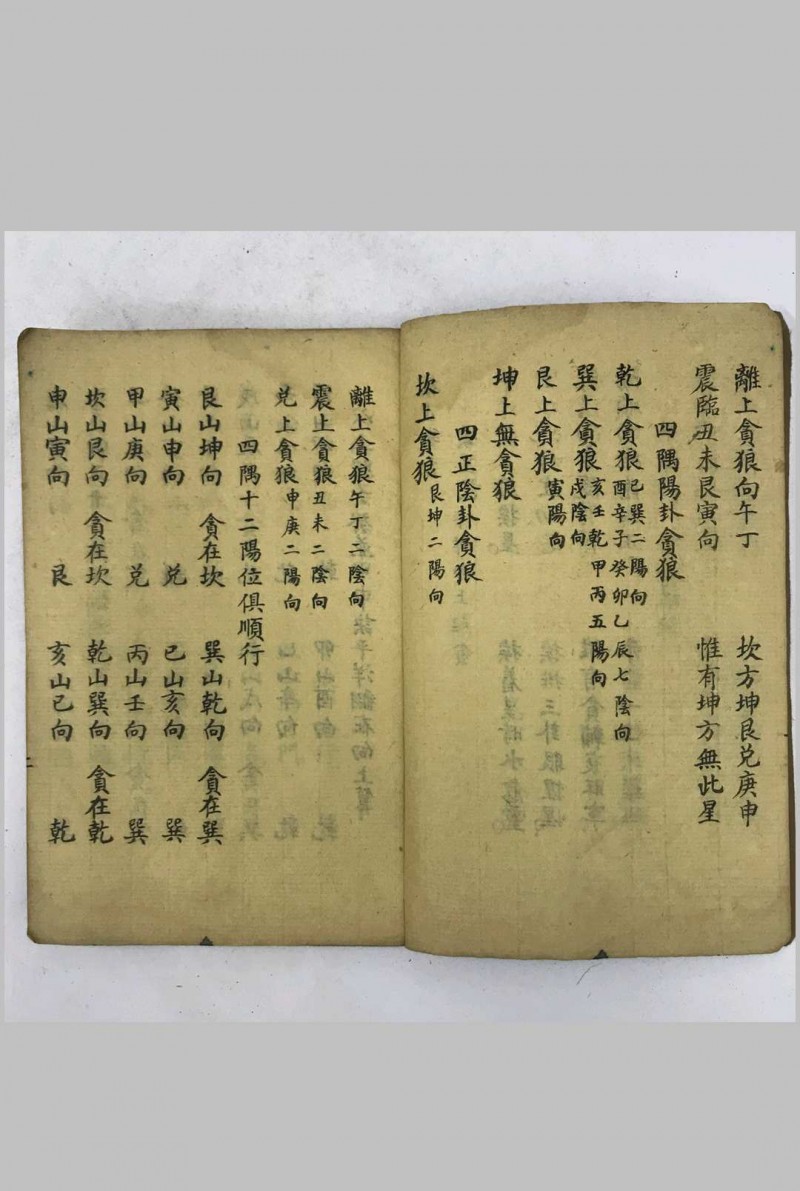 離上貪狼向午丁　坎方坤艮兌庚申
震臨丑未艮寅向　惟有坤方無此星
四隅陽卦貪狼
乾上貪狼
巳巽二陽向
酉辛子癸卯乙辰七陰向
巽上貪狼
亥壬乾甲丙五陽向
戌陰向
艮上貪狼寅陽向
坤上無貪狼
四正陰卦貪狼
坎上貪狼艮坤二陽向
離上貪狼午丁二陰向
震上貪狼丑未二陰向
兌上貪狼申庚二陽向
四隅十二陽位俱順行
艮山坤向　貪在坎　巽山乾向　貪在巽
寅山申向　兌　巳山亥向　巽
甲山庚向　兌　丙山壬向　巽
坎山艮向　貪在坎　乾山巽向　貪在乾
申山寅向　艮　亥山巳向　乾